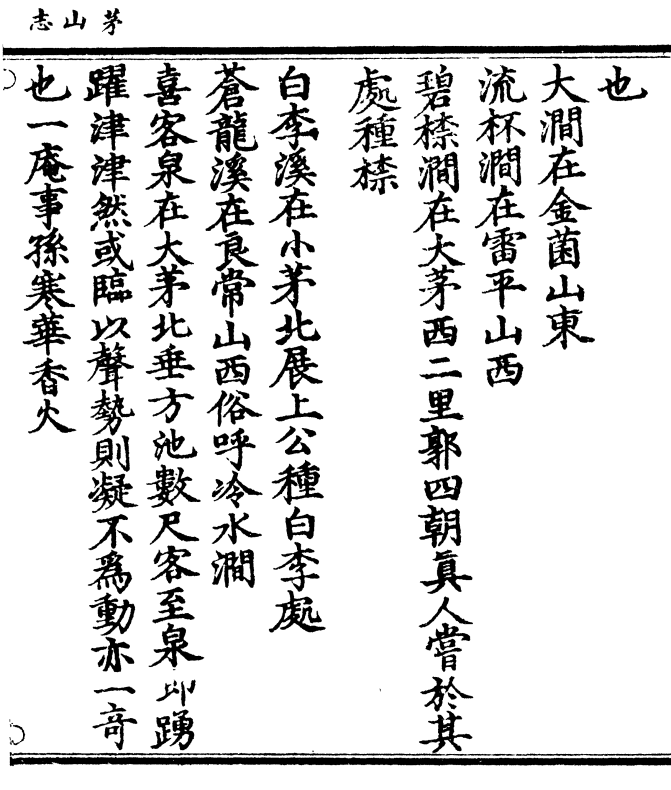 茅山志
也
大澗在金菌山東
流杯澗在雷平山西
碧㯲澗在大茅西二里郭四朝眞人嘗於其
處種㯲
白李溪在小茅北展上公種白李處
蒼龍溪在良常山西俗呼冷水澗
喜客泉在大茅北垂方池數尺客至泉卽踴
躍津津然或臨以聲勢則凝不爲動亦一奇
也一庵事孫寒華香火